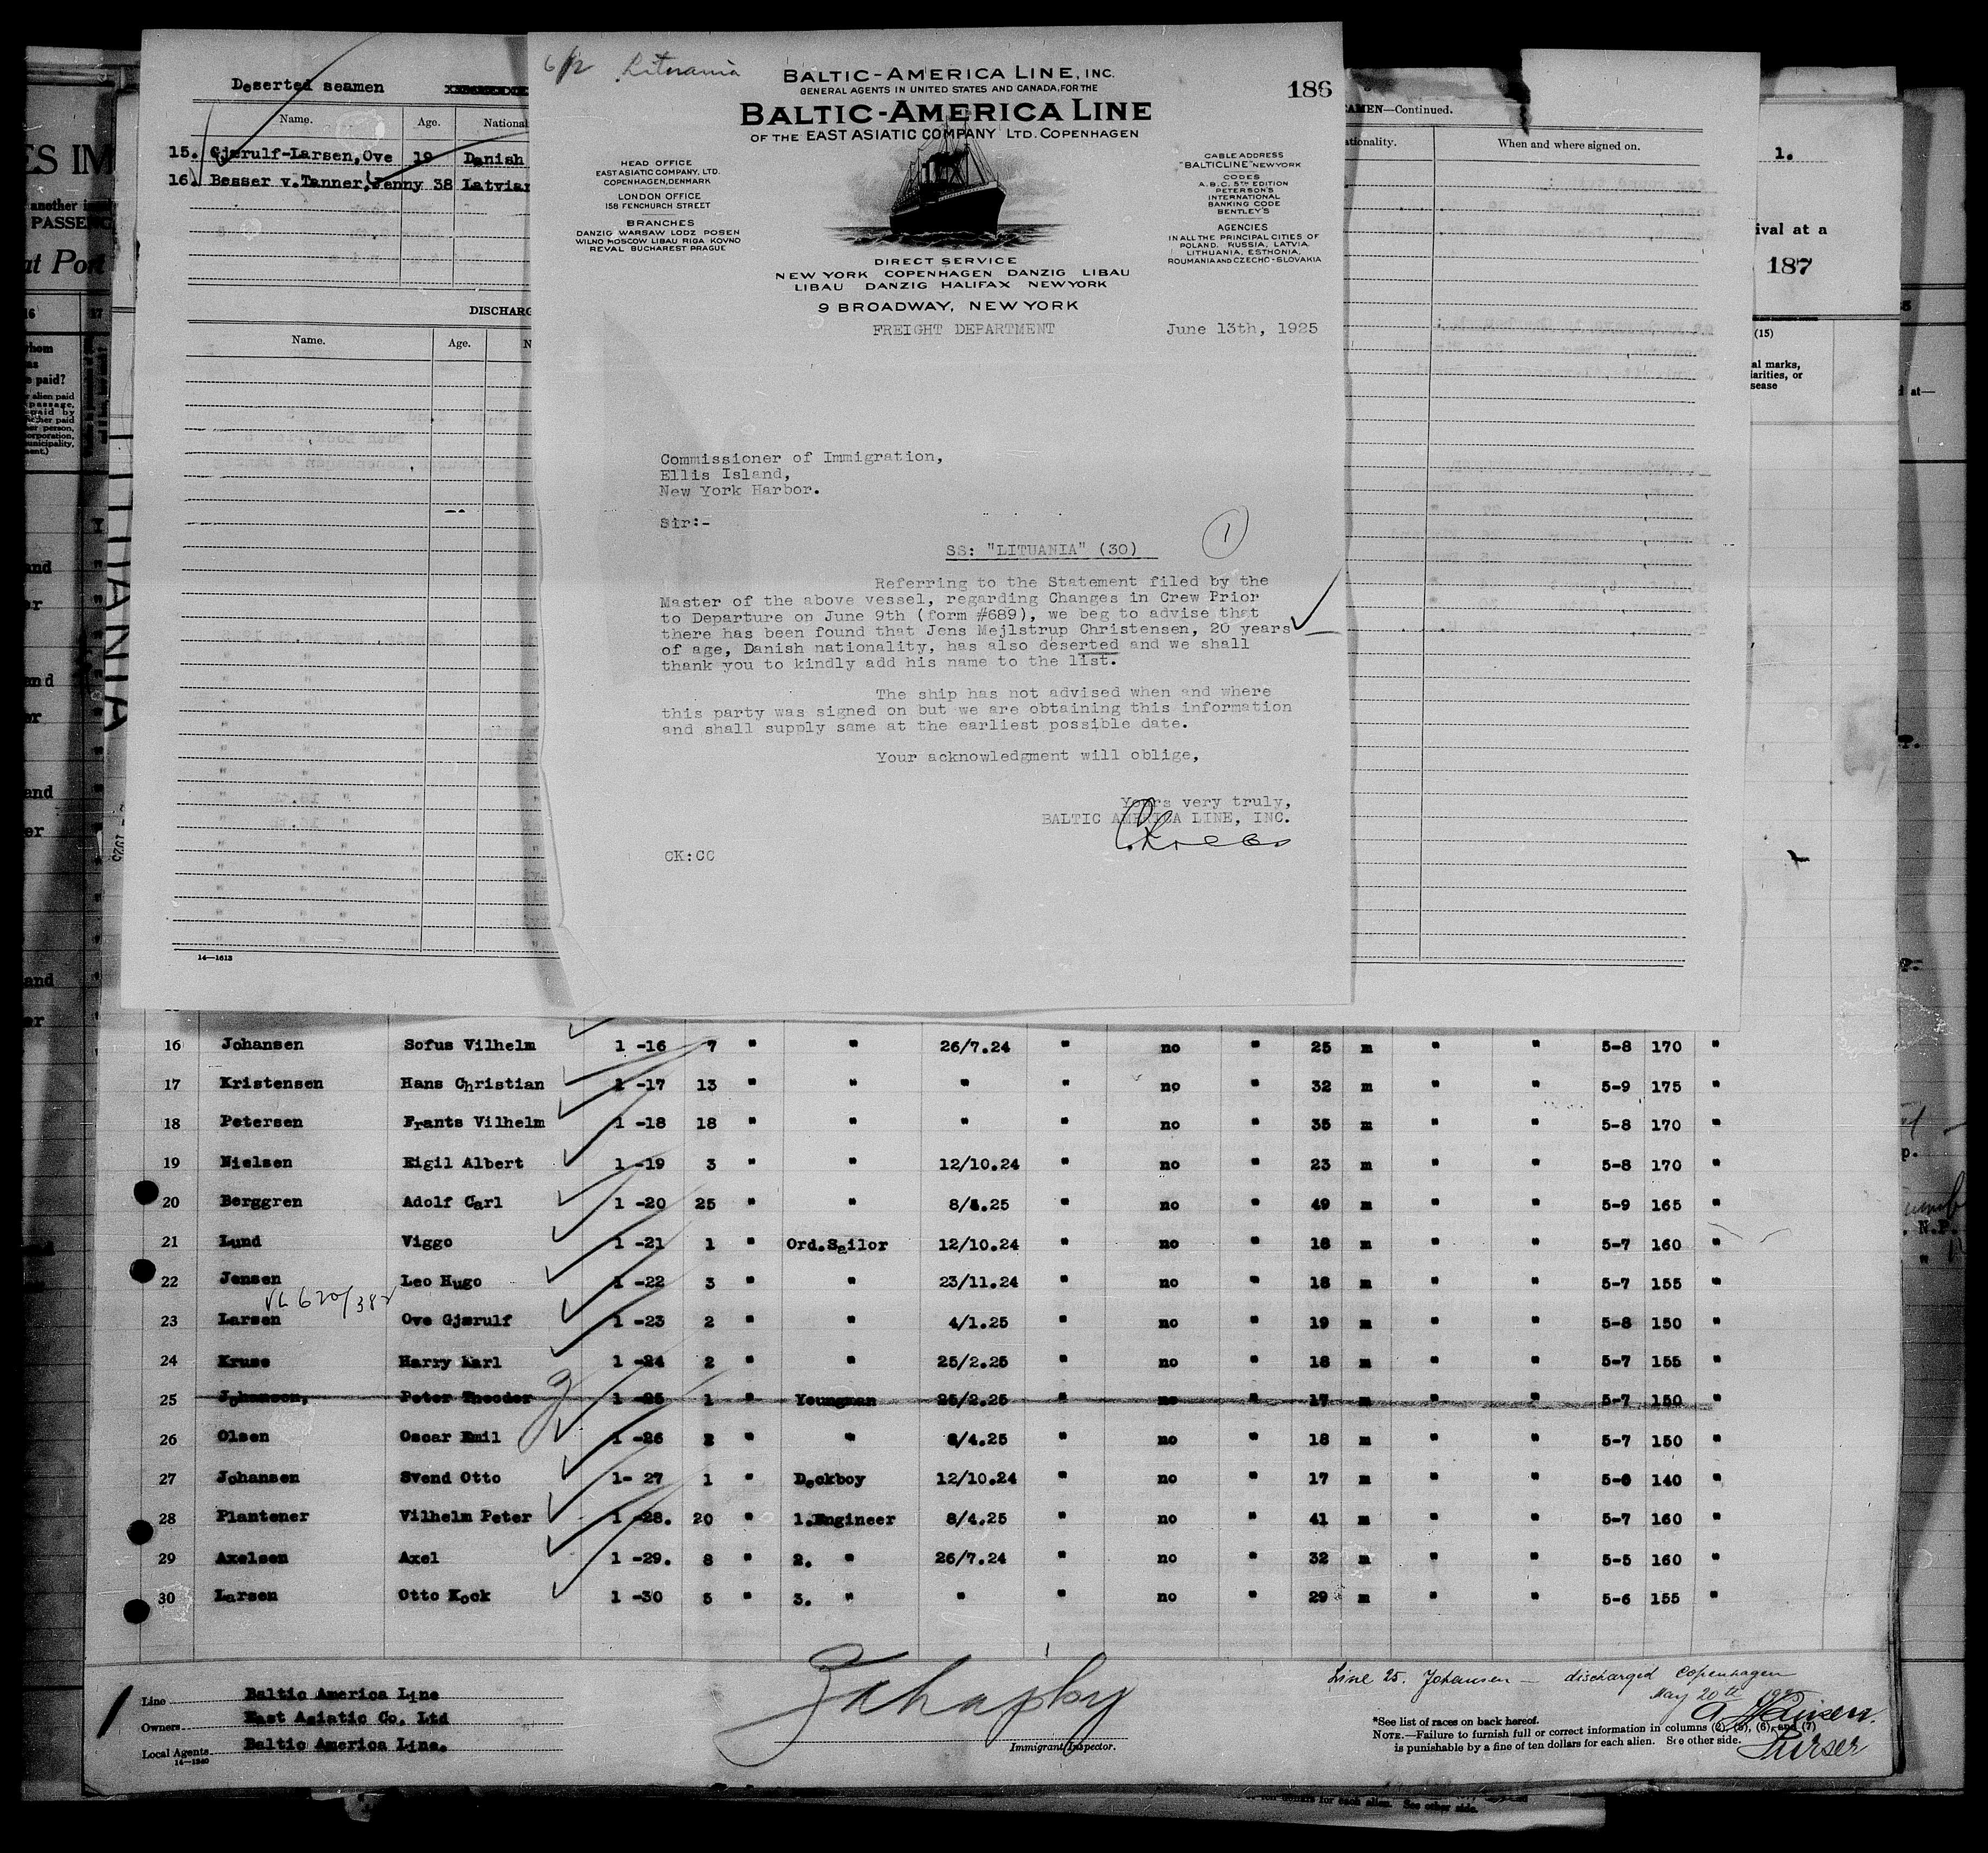 Deserted seamen
Name. Age. National
15. Gjærulf-Larsen,Ove 19 Danish
16. Besser v.Tanner,Jenny 38 Latvian
DISCHARG
Name. Age. N
14—1613
6/12 Lituania
186
BALTIC-AMERICA LINE, INC.
GENERAL AGENTS IN UNITED STATES AND CANADA, FOR THE
BALTIC-AMERICA LINE
OF THE EAST ASIATIC COMPANY LTD. COPENHAGEN
HEAD OFFICE
EAST ASIATIC COMPANY, LTD.
COPENHAGEN, DENMARK
LONDON OFFICE
158 FENCHURCH STREET
BRANCHES
DANZIG WARSAW LODZ POSEN
WILNO MOSCOW LIBAU RIGA KOVNO
REVAL BUCHAREST PRAGUE
CABLE ADDRESS
"BALTICLINE" NEW YORK
CODES
A.B.C. 5TH EDITION
PETERSON'S
INTERNATIONAL
BANKING CODE
BENTLEY'S
AGENCIES
IN ALL THE PRINCIPAL CITIES OF
POLAND, RUSSIA, LATVIA,
LITHUANIA, ESTHONIA,
ROUMANIA AND CZECHO-SLOVAKIA
DIRECT SERVICE
NEW YORK COPENHAGEN DANZIG LIBAU
LIBAU DANZIG HALIFAX NEW YORK
9 BROADWAY, NEW YORK
FREIGHT DEPARTMENT June 13th, 1925
Commissioner of Immigration,
Ellis Island,
New York Harbor.
Sir:-
1
SS: "LITUANIA" (30)
Referring to the Statement filed by the
Master of the above vessel, regarding Changes in Crew Prior
to Departure on June 9th (form #689), we beg to advise that
there has been found that Jens Mejlstrup Christensen, 20 years
of age, Danish nationality, has also deserted and we shall
thank you to kindly add his name to the list.
The ship has not advised when and where
this party was signed on but we are obtaining this information
and shall supply same at the earliest possible date.
Your acknowledgment will oblige,
Yours very truly,
BALTIC AMERICA LINE, INC.
CK:CC
AMEN—Continued.
ationality. When and where signed on.
1.
ival at a
187
(15)
al marks,
iarities, or
sease
ES IM
another i
PASSENG
at Port
LITHUANIA
1925
16 Johansen Sofus Vilhelm 1 -16 7 " " 26/7.24 " no " 25 m " " 5-8 170 "
17 Kristensen Hans Christian 1 -17 13 " " " " no " 32 m " " 5-9 175 "
18 Petersen Frants Vilhelm 1 -18 18 " " " " no " 35 m " " 5-8 170 "
19 Nielsen Eigil Albert 1 -19 3 " " 12/10.24 " no " 23 m " " 5-8 170 "
20 Berggren Adolf Carl 1 -20 25 " " 8/4.25 " no " 49 m " " 5-9 165 "
21 Lund Viggo 1 -21 1 " Ord.Sailor 12/10.24 " no " 18 m " " 5-7 160 "
22 Jensen Leo Hugo 1 -22 3 " " 23/11.24 " no " 18 m " " 5-7 155 "
VL 620/382
23 Larsen Ove Gjærulf 1 -23 2 " " 4/1.25 " no " 19 m " " 5-8 150 "
24 Kruse Harry Karl 1 -24 2 " " 25/2.25 " no " 18 m " " 5-7 155 "
25 Johansen, Peter Theodor 1 -25 1 " Youngman 25/2.25 " no " 17 m " " 5-7 150 "
26 Olsen Oscar Emil 1 -26 2 " " 8/4.25 " no " 18 m " " 5-7 150 "
27 Johansen Svend Otto 1- 27 1 " Deckboy 12/10.24 " no " 17 m " " 5-6 140 "
28 Plantener Vilhelm Peter 1 -28. 20 " 1.Engineer 8/4.25 " no " 41 m " " 5-7 160 "
29 Axelsen Axel 1 -29. 8 " 2. " 26/7.24 " no " 32 m " " 5-5 160 "
30 Larsen Otto Kock 1 -30 5 " 3. " " " no " 29 m " " 5-6 155 "
Line Baltic America Line
Owners East Asiatic Co. Ltd
Local Agents Baltic America Line.
14—1240
Immigrant Inspector.
Line 25. Johansen — discharged Copenhagen
May 20th 1925
Purser
*See list of races on back hereof.
NOTE.—Failure to furnish full or correct information in columns (2), (5), (6), and (7)
is punishable by a fine of ten dollars for each alien. See other side.